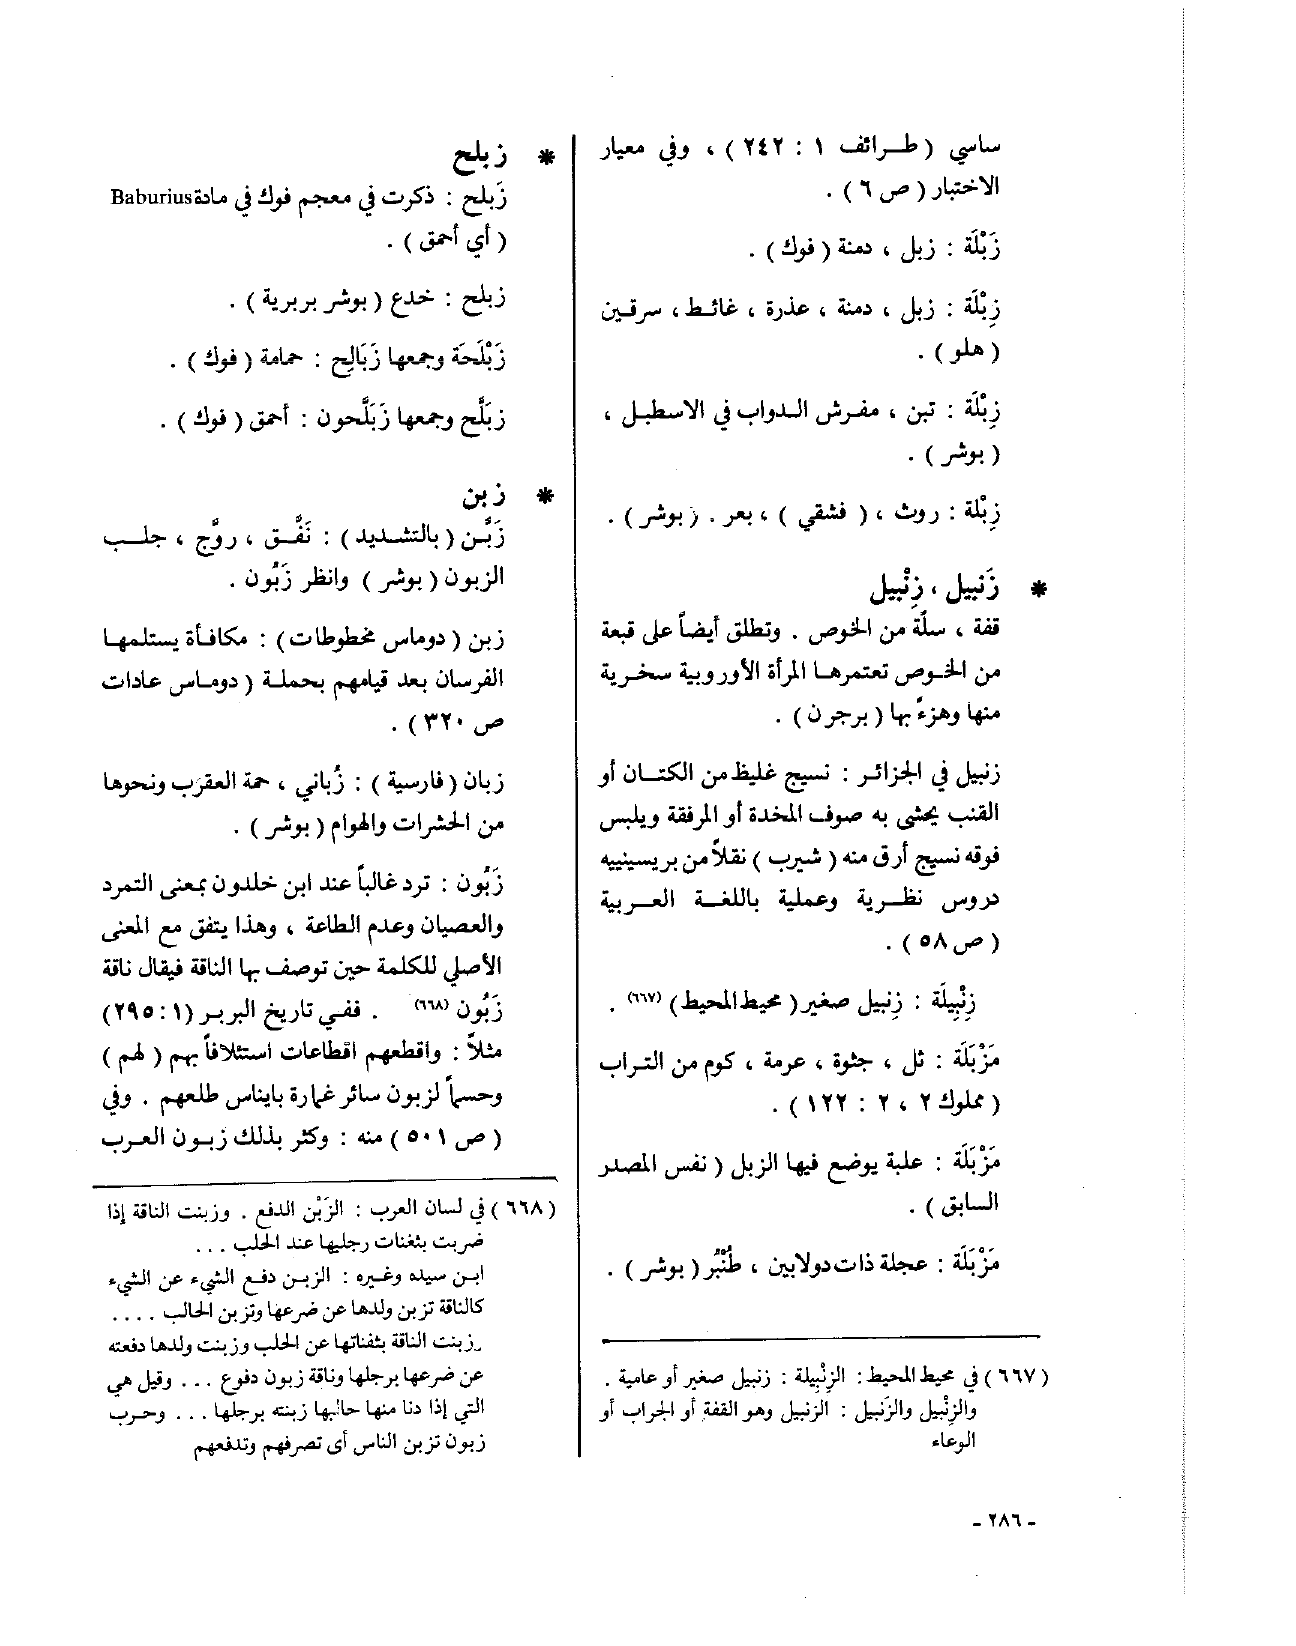 ساسي ( طرائف ١ : ٢٤٢ ) ، وفي معيار
الاختبار ( ص ٦ ) .
زَبْلَة : زبل ، دمنة ( فوك ) .
زِبْلَة : زبل ، دمنة ، عذرة ، غائط ، سرقين
( هلو ) .
زِبْلَة : تبن ، مفرش الدواب في الاسطبل ،
( بوشر ) .
زِبْلة : روث ، ( فشقي ) ، بعر . ( بوشر ) .
* زَنبيل ، زِنْبيل
قفة ، سلّة من الخوص . وتطلق أيضاً على قبعة
من الخوص تعتمرها المرأة الأوروبية سخرية
منها وهزءً بها ( برجرن ) .
زنبيل في الجزائر : نسيج غليظ من الكتان أو
القنب يحشى به صوف المخدة أو المرفقة ويلبس
فوقه نسيج أرق منه ( شيرب ) نقلاً من بريسينييه
دروس نظرية وعملية باللغة العربية
( ص ٥٨ ) .
زِنْبِيلَة : زنبيل صغير ( محيط المحيط ) (٦٦٧) .
مَزْبَلَة : تل ، جثوة ، عرمة ، كوم من التراب
( مملوك ٢ ، ٢ : ١٢٢ ) .
مَزْبَلَة : علبة يوضع فيها الزبل ( نفس المصدر
السابق ) .
مَزْبَلَة : عجلة ذات دولابين ، طُنْبُر ( بوشر ) .
( ٦٦٧ ) في محيط المحيط : الزِنْبِيلة : زنبيل صغير أو عامية .
والزِنْبيل والزَنبيل : الزنبيل وهو القفة أو الجراب أو
الوعاء
* زبلح
زَبلح : ذكرت في معجم فوك في مادة Baburius
( أي أحمق ) .
زبلح : خدع ( بوشر بربرية ) .
زَبْلَحَة وجمعها زَبَالِح : حمامة ( فوك ) .
زبَلَّح وجمعها زَبَلَّحون : أحمق ( فوك ) .
* زبن
زَبَّن ( بالتشديد ) : نَفَّق ، روَّج ، جلب
الزبون ( بوشر ) وانظر زَبُون .
زبن ( دوماس مخطوطات ) : مكافأة يستلمها
الفرسان بعد قيامهم بحملة ( دوماس عادات
ص ٣٢٠ ) .
زبان ( فارسية ) : زُباني ، حمة العقرب ونحوها
من الحشرات والهوام ( بوشر ) .
زَبُون : ترد غالباً عند ابن خلدون بمعنى التمرد
والعصيان وعدم الطاعة ، وهذا يتفق مع المعنى
الأصلي للكلمة حين توصف بها الناقة فيقال ناقة
زَبُون (٦٦٨) . ففي تاريخ البربر (١ : ٢٩٥)
مثلاً : واقطعهم اقطاعات استئلافاً بهم ( لهم )
وحسماً لزبون سائر غمارة بايناس طلعهم . وفي
( ص ٥٠١ ) منه : وكثر بذلك زبون العرب
( ٦٦٨ ) في لسان العرب : الزَبْن الدفع . وزبنت الناقة إذا
ضربت بثفنات رجليها عند الحلب ...
ابن سيده وغيره : الزبن دفع الشيء عن الشيء
كالناقة تزبن ولدها عن ضرعها وتزبن الحالب ....
زبنت الناقة بثفناتها عن الحلب وزبنت ولدها دفعته
عن ضرعها برجلها وناقة زبون دفوع ... وقيل هي
التي إذا دنا منها حالبها زبنته برجلها ... وحرب
زبون تزبن الناس أى تصرفهم وتدفعهم
- ٢٨٦ -